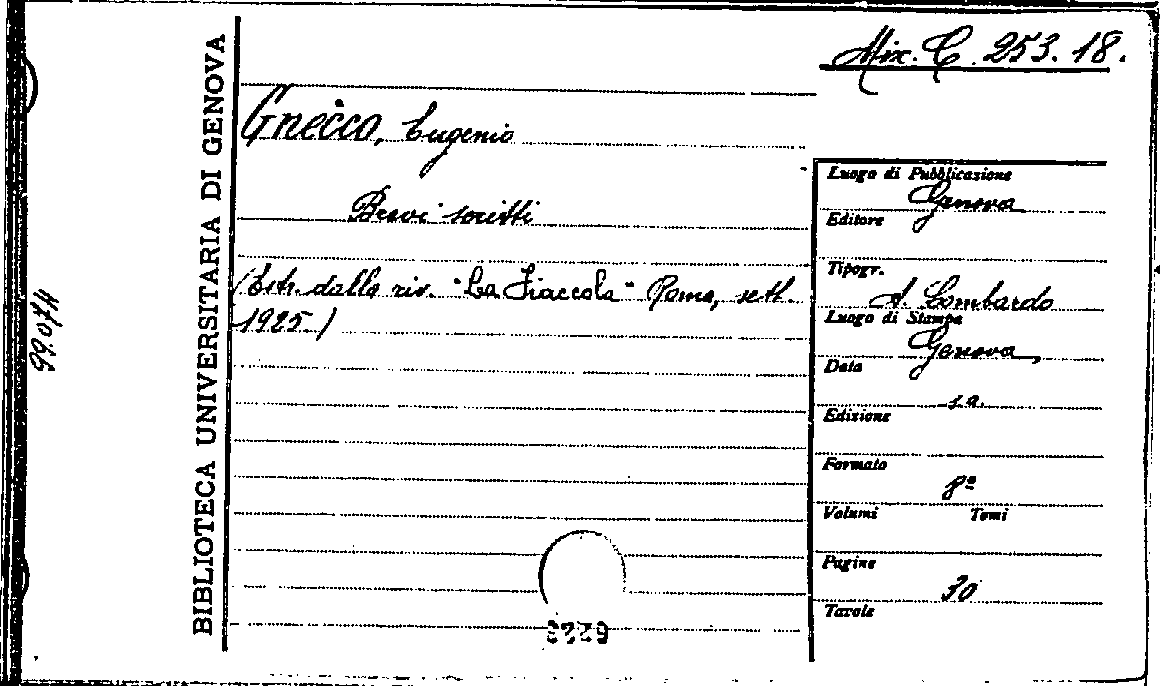 Mix. C. 253. 18.
BIBLIOTECA UNIVERSITARIA DI GENOVA
99.074
Gnecco, Eugenio
Brevi scritti
(Estr. dalla riv. "La Fiaccola" Roma, sett.
1925)
Luogo di Pubblicazione
Genova
Editore
Tipogr.
A. Lombardo
Luogo di Stampa
Genova,
Data
s.a.
Edizione
Formato
8º
Volumi Tomi
Pagine
30
Tavole